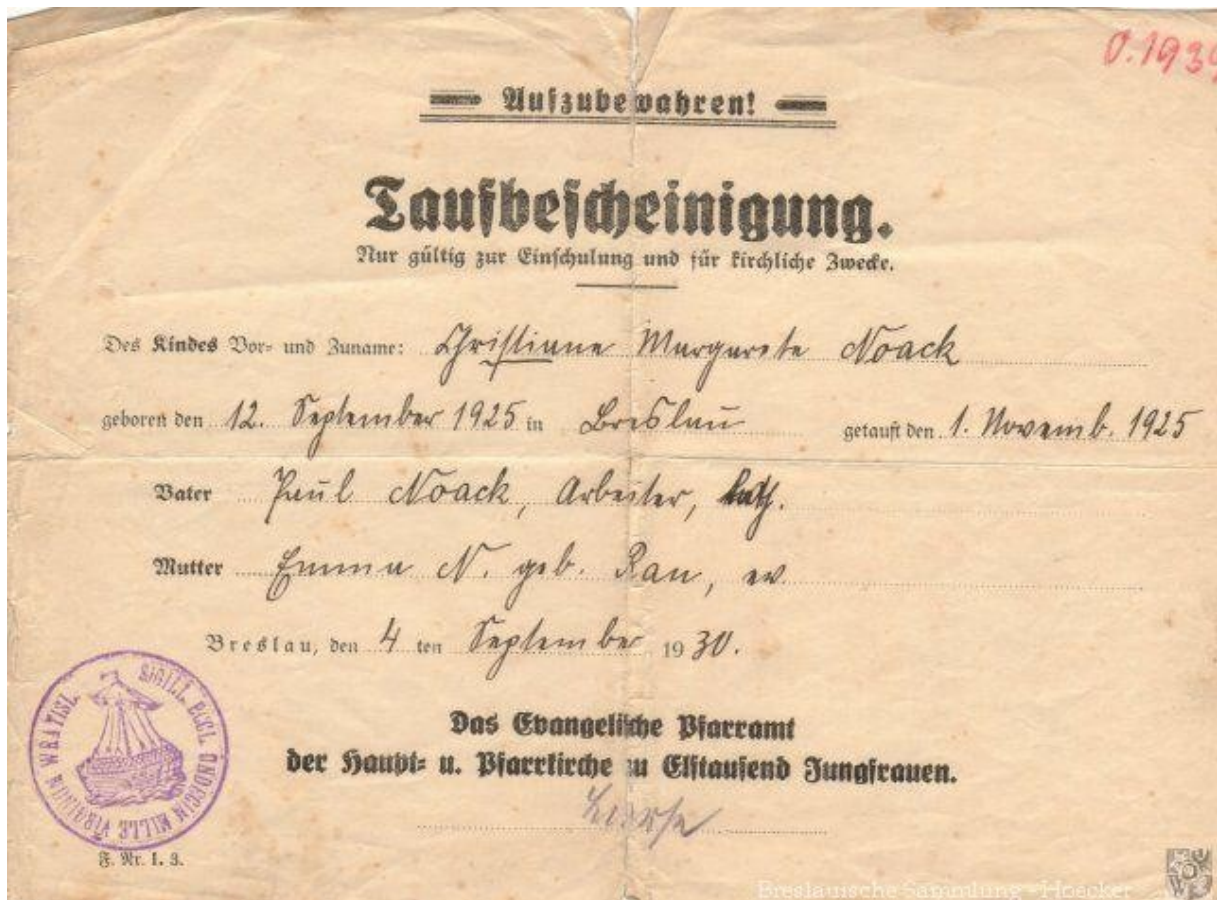 O. 1939
Aufzubewahren!
Taufbescheinigung.
Nur gültig zur Einschulung und für kirchliche Zwecke.
Des Kindes Vor- und Zuname: Christiane Margarete Noack
geboren den 12. September 1925 in Breslau getauft den 1. Novemb. 1925
Vater Paul Noack, Arbeiter, kath.
Mutter Emma N. geb. Rau, ev
Breslau, den 4 ten September 1930.
SIGILL. ECCL. UNDECIM MILLE VIRGINUM WRATISL.
Das Evangelische Pfarramt
der Haupt- u. Pfarrkirche zu Elftausend Jungfrauen.
F. Nr. 1. 3.
Breslauische Sammlung - Hoecker